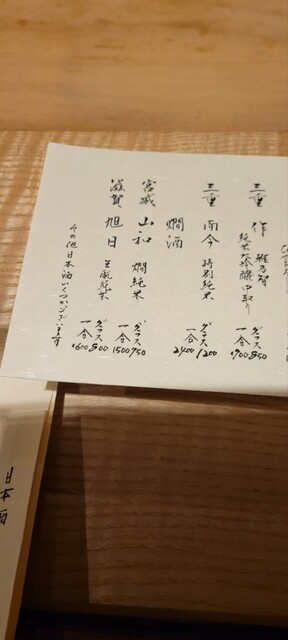 三重 作 雅乃智
純米大吟醸 中取り
グラス 850
一合 1700
三重 而今 特別純米
グラス 1200
一合 2400
燗酒
宮城 山和 燗純米
グラス 750
一合 1500
滋賀 旭日 生酛純米
グラス 800
一合 1600
その他日本酒いくつかございます
日本酒